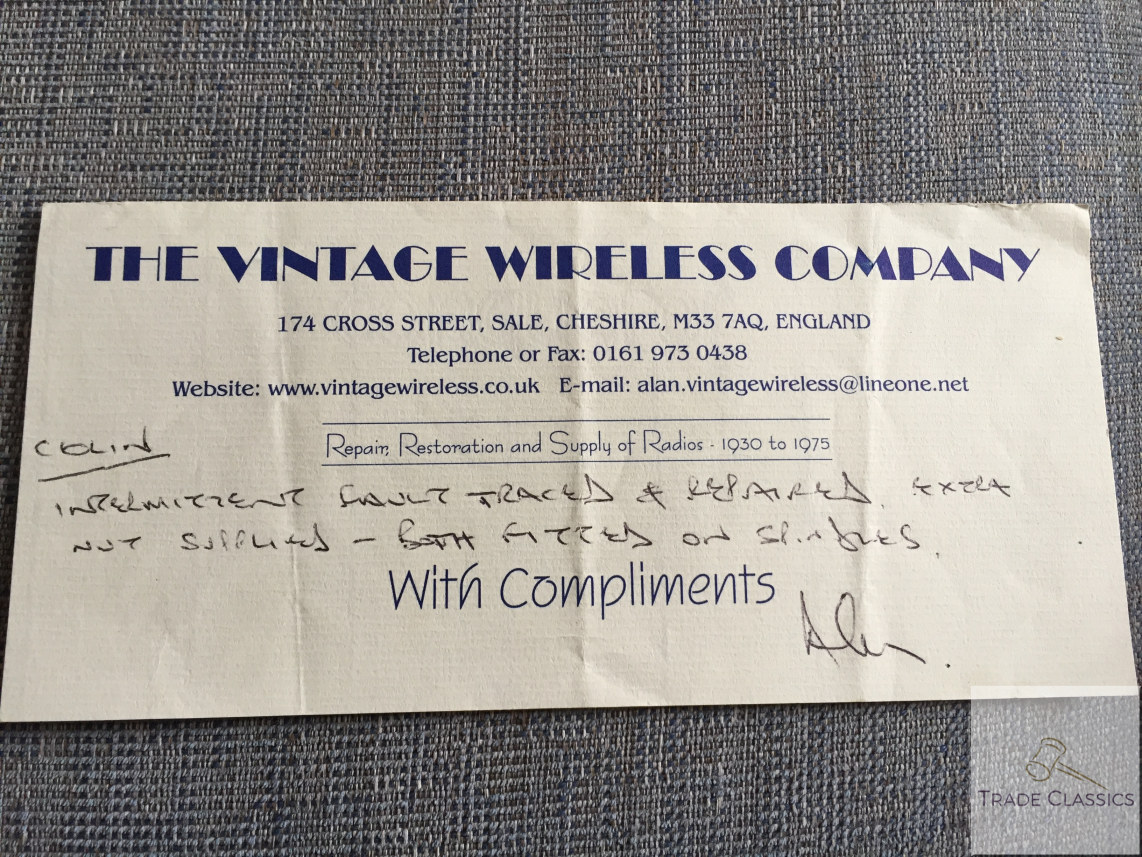 THE VINTAGE WIRELESS COMPANY
174 CROSS STREET, SALE, CHESHIRE, M33 7AQ, ENGLAND
Telephone or Fax: 0161 973 0438
Website: www.vintagewireless.co.uk E-mail: alan.vintagewireless@lineone.net
Repair, Restoration and Supply of Radios - 1930 to 1975
COLIN
INTERMITTENT FAULT TRACED & REPAIRED. EXTRA
NUT SUPPLIED - BOTH FITTED ON SPINDLES.
With Compliments
Alan.
TRADE CLASSICS